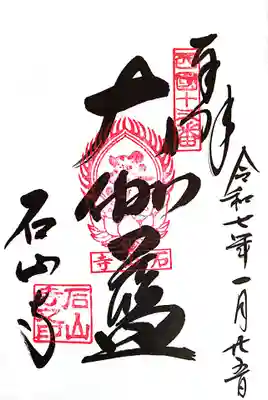 奉拝
西国十三番
令和七年一月廿五日
大伽藍
石山寺
石山寺
石山寺印